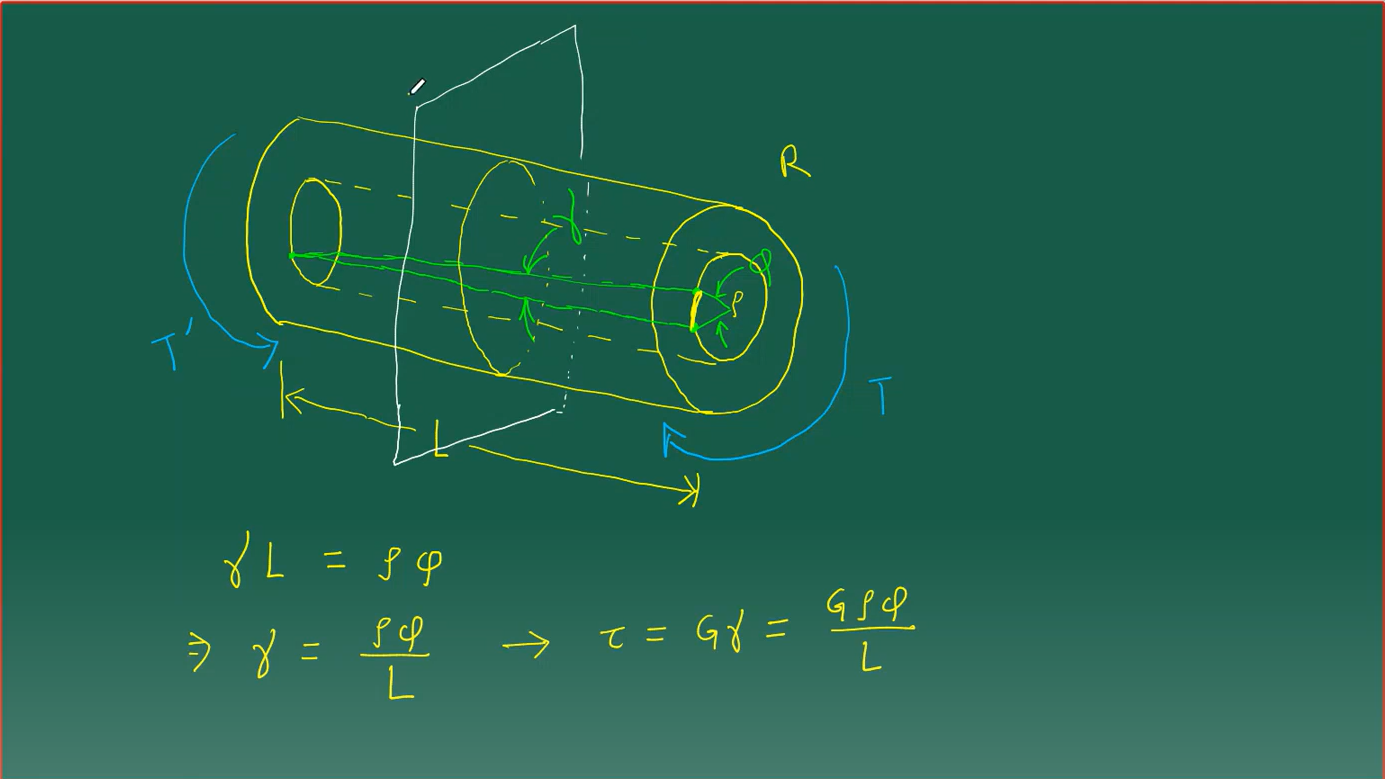 R
γ
φ
ρ
T'
T
L
γL = ρφ
⇒ γ = ρφ/L → τ = Gγ = Gρφ/L